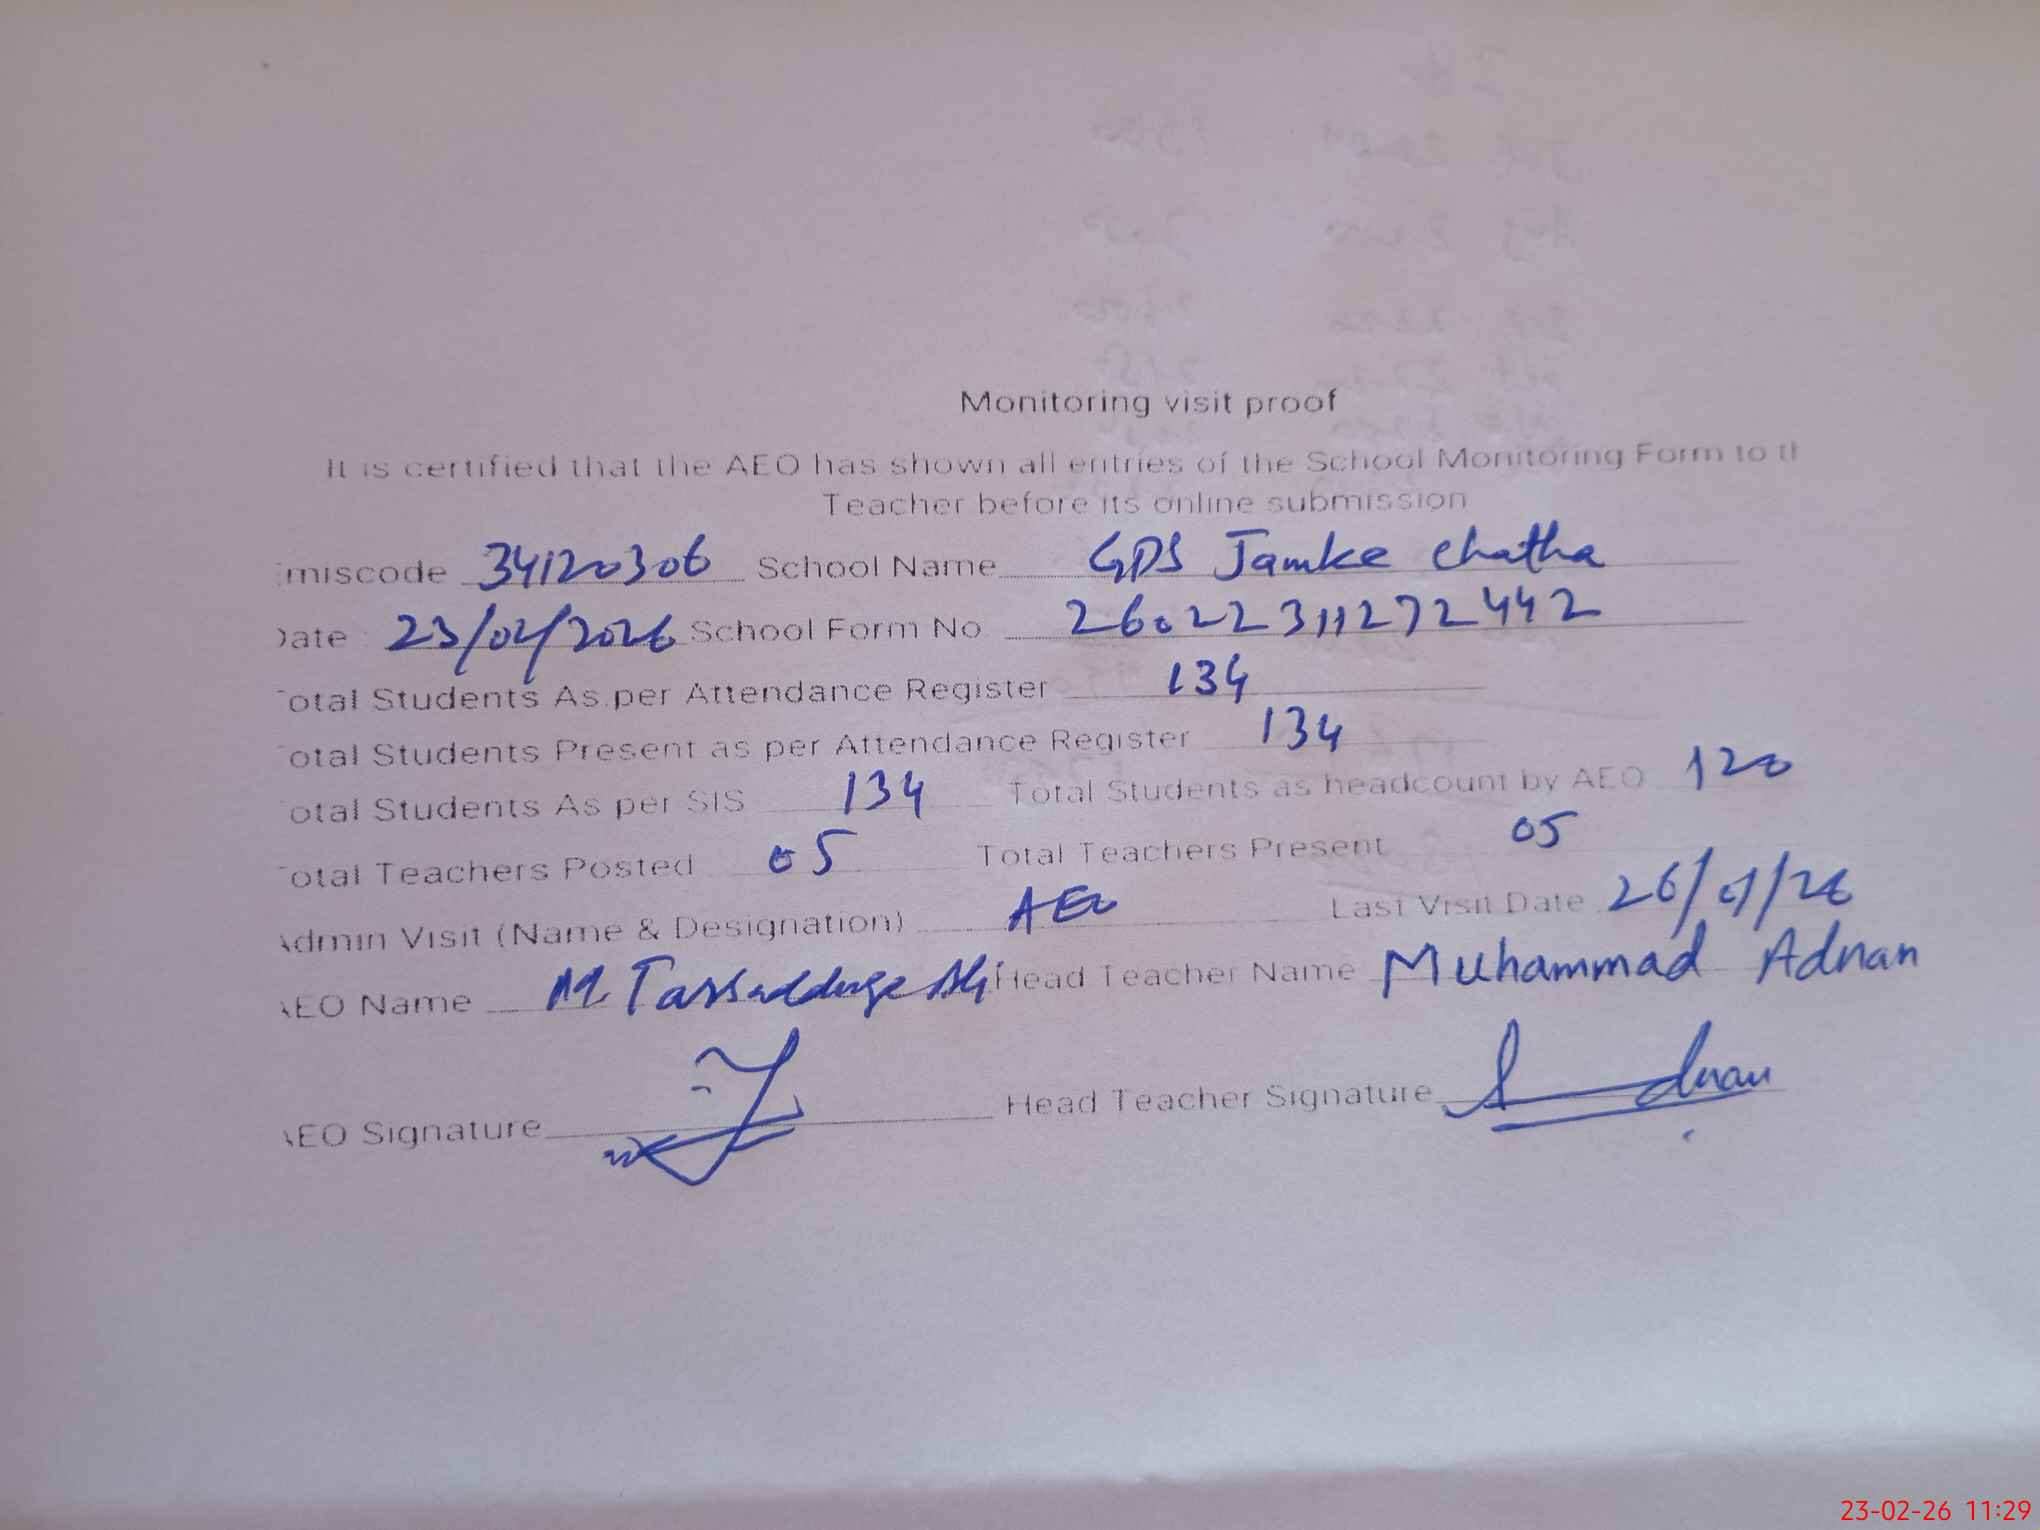 Monitoring visit proof
It is certified that the AEO has shown all entries of the School Monitoring Form to th
Teacher before its online submission
miscode 34120306 School Name GPS Jamke Chatha
Date: 23/02/2026 School Form No. 26022311272442
Total Students As per Attendance Register 134
Total Students Present as per Attendance Register 134
Total Students As per SIS 134 Total Students as headcount by AEO 120
Total Teachers Posted 05 Total Teachers Present 05
Admin Visit (Name & Designation) AEO Last Visit Date 26/01/26
AEO Name M. Tassadduqe Ali Head Teacher Name Muhammad Adnan
AEO Signature Head Teacher Signature Adnan
23-02-26 11:29